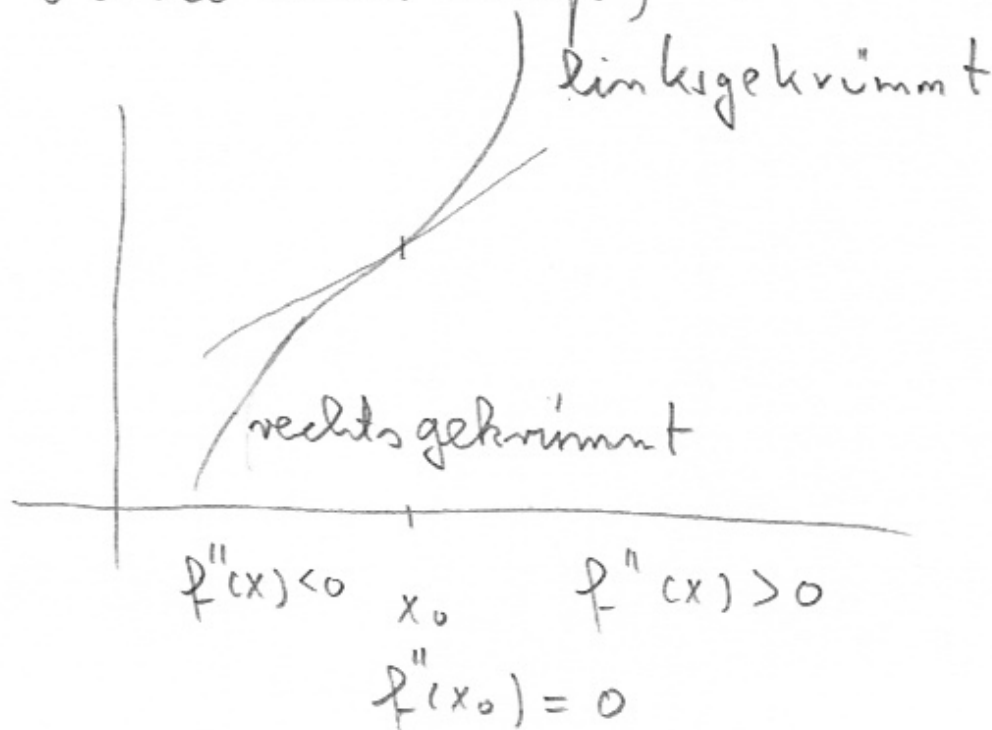 linksgekrümmt
rechtsgekrümmt
f''(x)<0 x₀ f''(x) > 0
f''(x₀) = 0